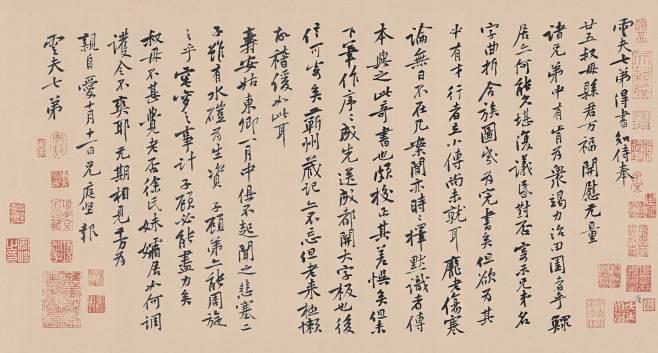 雲夫七弟得書知侍奉
廿五叔母縣君万福開慰无量
諸兄弟中有肯為衆竭力治田園者乎鰥
居亦何能久堪復議昏對否雲示兄弟名
字曲折合族圖家為完書矣但欲為其
中有才行者立小傳尚未就耳龐老傷寒
論無日不在几案間亦時時擇默識者傳
本與之此奇書也頗校正其差悮矣但未
下筆作序序成先送成都開大字板也後
信可寄矣蘄州藏記亦不忘但老來極懶
故稽緩如此耳
壽安姑東卿一月中俱不起聞之悲塞二
子雖有水磑為生資子顧弟亦能周旋
之乎窀穸之事計子顧必能盡力矣
叔母不甚覺老否徐氏妹孀居如何調
護令不爽耶无期相見千万為
親自愛十月十一日兄庭堅報
雲夫七弟